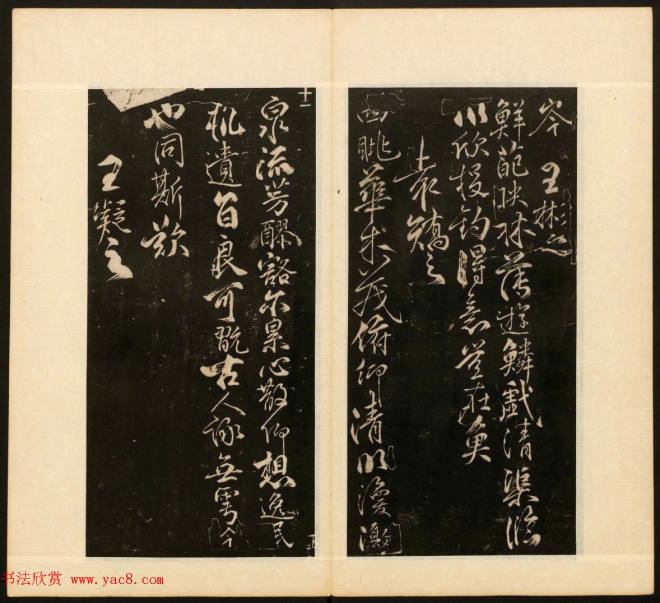 岑 王彬之
鮮葩映林薄遊鱗戲清渠臨
川欣投釣得意豈在魚
袁矯之
四眺華林茂俯仰清川激
泉流芳醪豁尔累心散仰想逸民
軌遺音良可翫古人詠無雩今
也同斯歎
王凝之
十二
书法欣赏 www.yac8.com